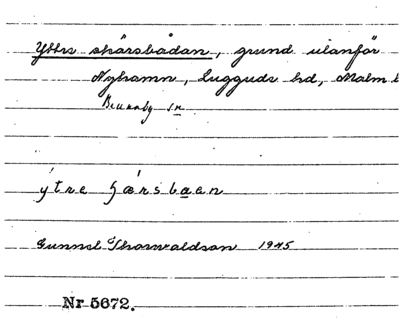 Yttre skärsbådan, grund utanför
Nyhamn, Luggude hd, Malm
Brunnby sn
ýtre ʃǽrsbaen
Gunnel Thorwaldson 1945
Nr 5672.